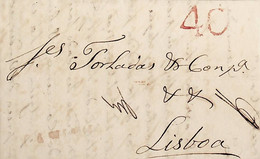 40
Sres Torlades & Comp.a
& &
Lisboa